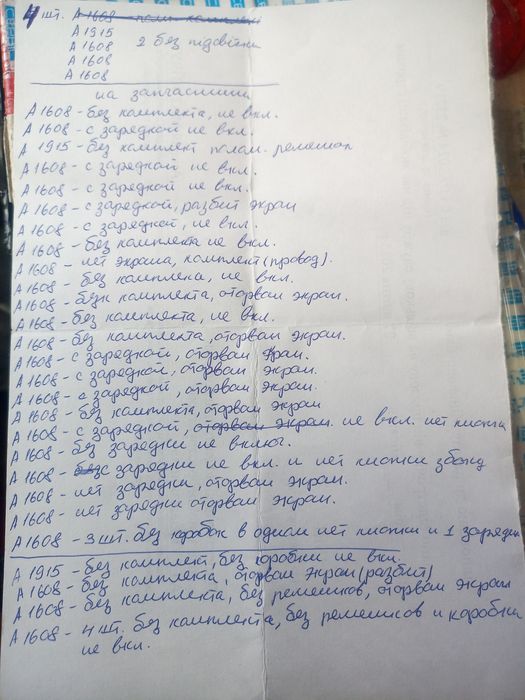 4 шт. А 1608 - полн комплект
А 1915
А 1608 2 без підсвітки
А 1608
А 1608
на запчасти
А 1608 - без комплекта, не вкл.
А 1608 - с зарядкой не вкл.
А 1915 - без комплект полам. ремешок
А 1608 - с зарядкой не вкл.
А 1608 - с зарядкой не вкл.
А 1608 - с зарядкой, разбит экран
А 1608 - с зарядкой, не вкл.
А 1608 - без комплекта не вкл.
А 1608 - нет экрана, комплект (провод).
А 1608 - без комплекта, не вкл.
А 1608 - без комплекта, оторван экран.
А 1608 - без комплекта, не вкл.
А 1608 - без комплекта, оторван экран.
А 1608 - с зарядкой, оторван экран.
А 1608 - с зарядкой, оторван экран.
А 1608 - с зарядкой, оторван экран.
А 1608 - без комплекта, оторван экран
А 1608 - с зарядкой, оторван экран. не вкл. нет кнопки
А 1608 - без зарядки не включ.
А 1608 - без с зарядки не вкл. и нет кнопки збоку
А 1608 - нет зарядки, оторван экран.
А 1608 - нет зарядки оторван экран.
А 1608 - 3 шт. без коробок в одном нет кнопки и 1 зарядки
А 1915 - без комплект, без коробки не вкл.
А 1608 - без комплекта, оторван экран (разбит)
А 1608 - без комплекта, без ремешков, оторван экран
А 1608 - 4 шт. без комплекта, без ремешков и коробки
не вкл.